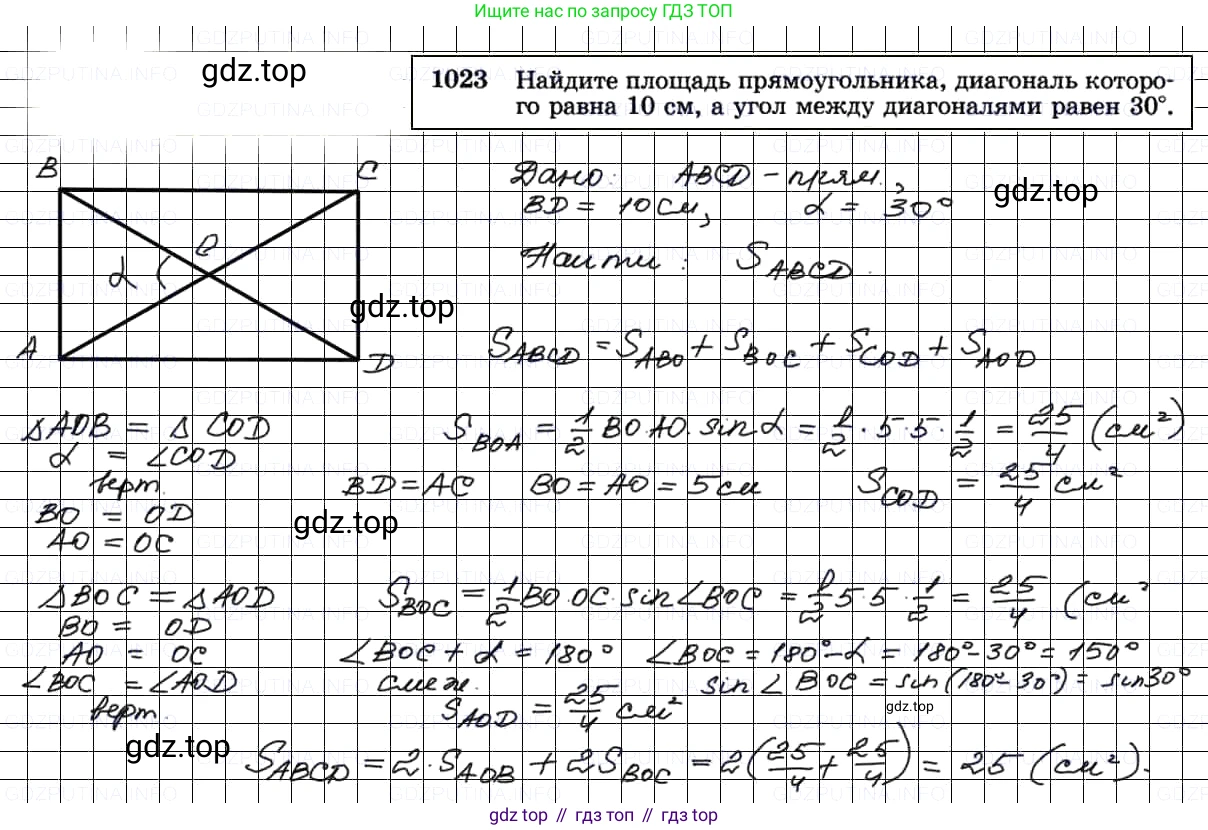 Ищите нас по запросу ГДЗ ТОП
gdz.top
1023 Найдите площадь прямоугольника, диагональ которо-
го равна 10 см, а угол между диагоналями равен 30°.
B C
Дано: ABCD - прям.,
gdz.top
BD = 10 см, α = 30°
O
α
Найти: S ABCD.
gdz.top
A D
S ABCD = S ABO + S BOC + S COD + S AOD
△AOB = △ COD
S BOA = 1/2 BO·AO·sin α = 1/2 · 5·5· 1/2 = 25/4 (см²)
α = ∠COD
верт.
BD = AC BO = AO = 5 см S COD = 25/4 см²
BO = OD
gdz.top
AO = OC
△BOC = △AOD
S BOC = 1/2 BO·OC·sin∠BOC = 1/2 5·5· 1/2 = 25/4 (см²
BO = OD
AO = OC
∠BOC + α = 180° ∠BOC = 180°-α = 180°-30° = 150°
∠BOC = ∠AOD
смеж. sin∠BOC = sin(180°-30°) = sin30°
верт.
S AOD = 25/4 см²
gdz.top
gdz.top
S ABCD = 2·S AOB + 2S BOC = 2(25/4 + 25/4) = 25 (см²).
gdz топ // гдз топ // gdz top